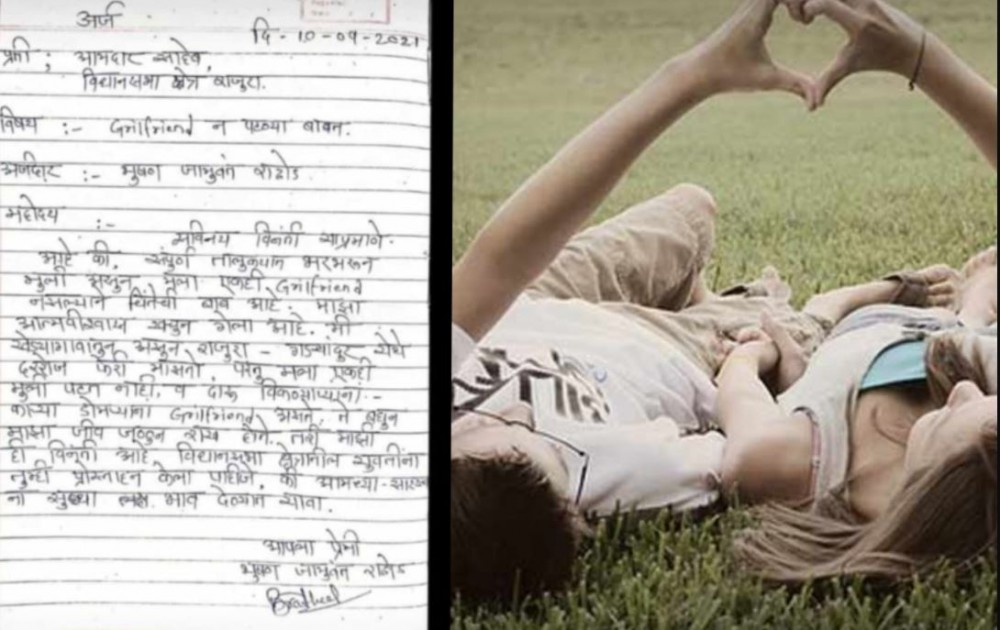 अर्ज
दि - 10-09-2021
प्रती ; आमदार साहेब,
विधानसभा क्षेत्र राजुरा.
विषय :- Grilfriend न पटल्या बाबत.
अर्जदार :- भुषण जामुवंत राठोड
महोदय
:- सविनय विनंती याप्रमाणे.
आहे की, संपुर्ण तालुक्यात भरभरून
मुली असुन मला एकही Grilfriend
नसल्याने चिंतेची बाब आहे. माझा
आत्मविश्वास खचुन गेला आहे. मी
खेड्यागावातुन असुन राजुरा - गडचांदुर येथे
दररोज फेरी मारतो. परंतु मला एकही
मुली पटत नाही, व दारू विकणाऱ्याना -
काऱ्या डोमऱ्याना Grilfriend असते, ते बघुन
माझा जीव जळुन राख होतो. तरी माझी
ही विनंती आहे, विधानसभा क्षेत्रातील युवतींना
तुम्ही प्रोस्ताहन केला पाहिजे, की आमच्या-सारख्या
ना सुध्दा भाव देण्यात यावा.
आपला प्रेमी
भुषण जामुवंत राठोड